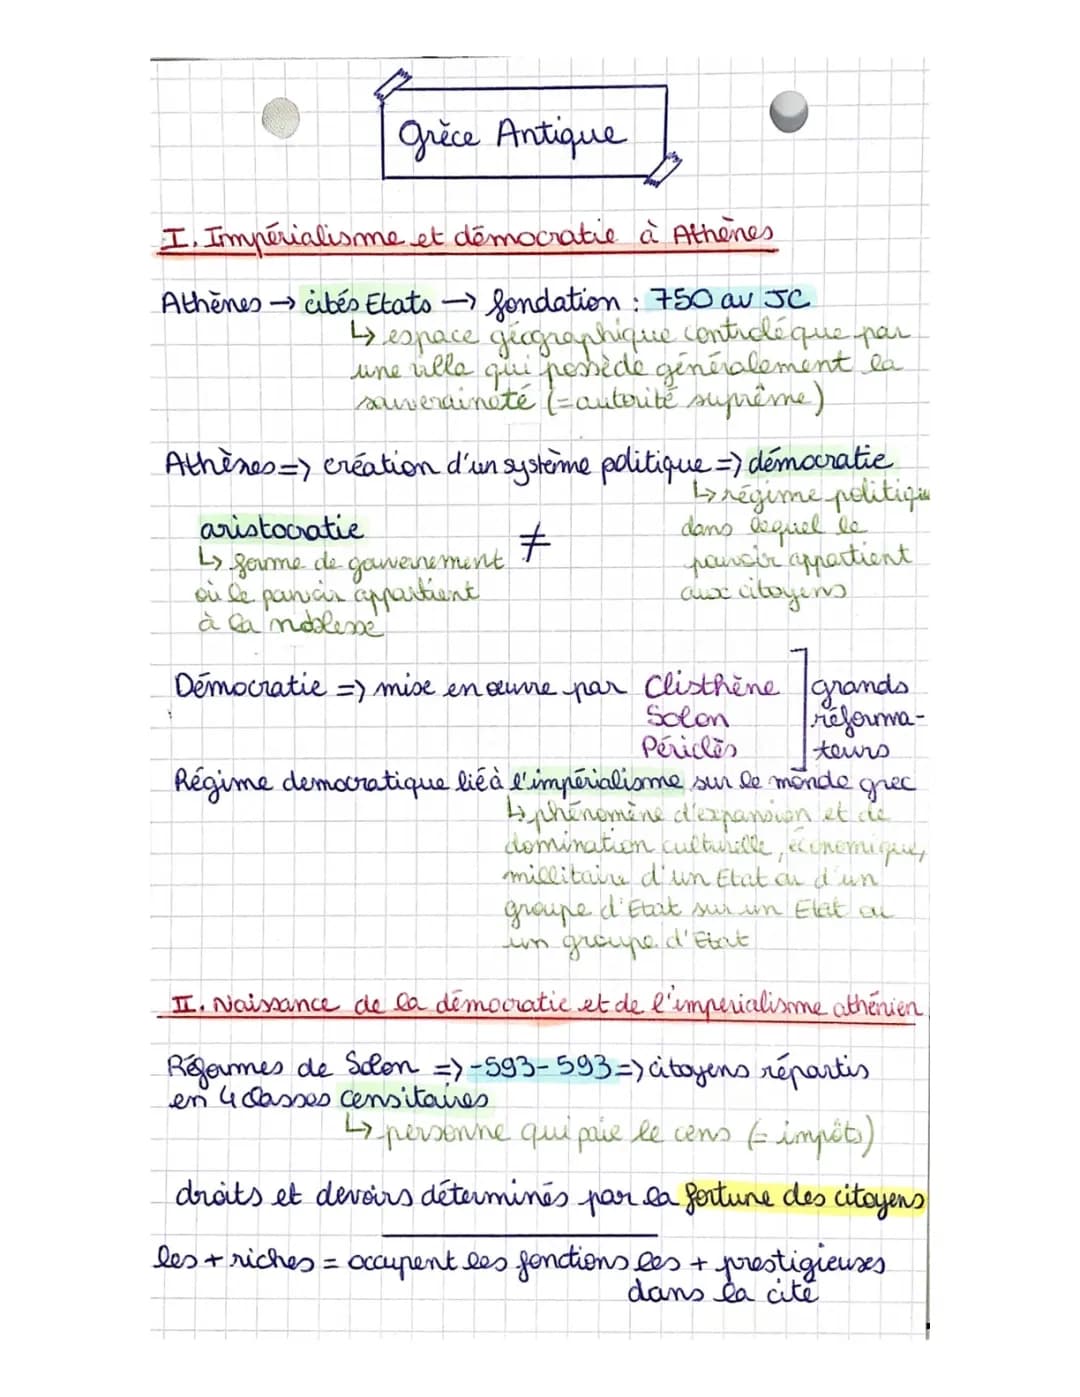 Grèce Antique
I. Impérialisme et démocratie à Athènes
Athènes → cités Etats → fondation : 750 av JC
↳ espace géographique controlé que par
une ville qui possède généralement la
souveraineté (=autorité suprême)
Athènes => création d'un système politique => démocratie
↳ régime politique
dans lequel le
pouvoir appartient
aux citoyens
≠
aristocratie
↳ forme de gouvernement
où le pouvoir appartient
à la noblesse
Démocratie => mise en œuvre par Clisthène
Solon
Périclès
grands
réforma-
teurs
Régime democratique lié à l'impérialisme sur le monde grec
↳ phénomène d'expansion et de
domination culturelle, économique,
millitaire d'un Etat ou d'un
groupe d'Etat sur un Etat ou
un groupe d'Etat
II. Naissance de la démocratie et de l'imperialisme athénien
Réformes de Solon => -593-593 => citoyens répartis
en 4 classes censitaires
↳ personne qui paie le cens (= impôts)
droits et devoirs déterminés par la fortune des citoyens
les + riches = occupent les fonctions les + prestigieuses
dans la cité